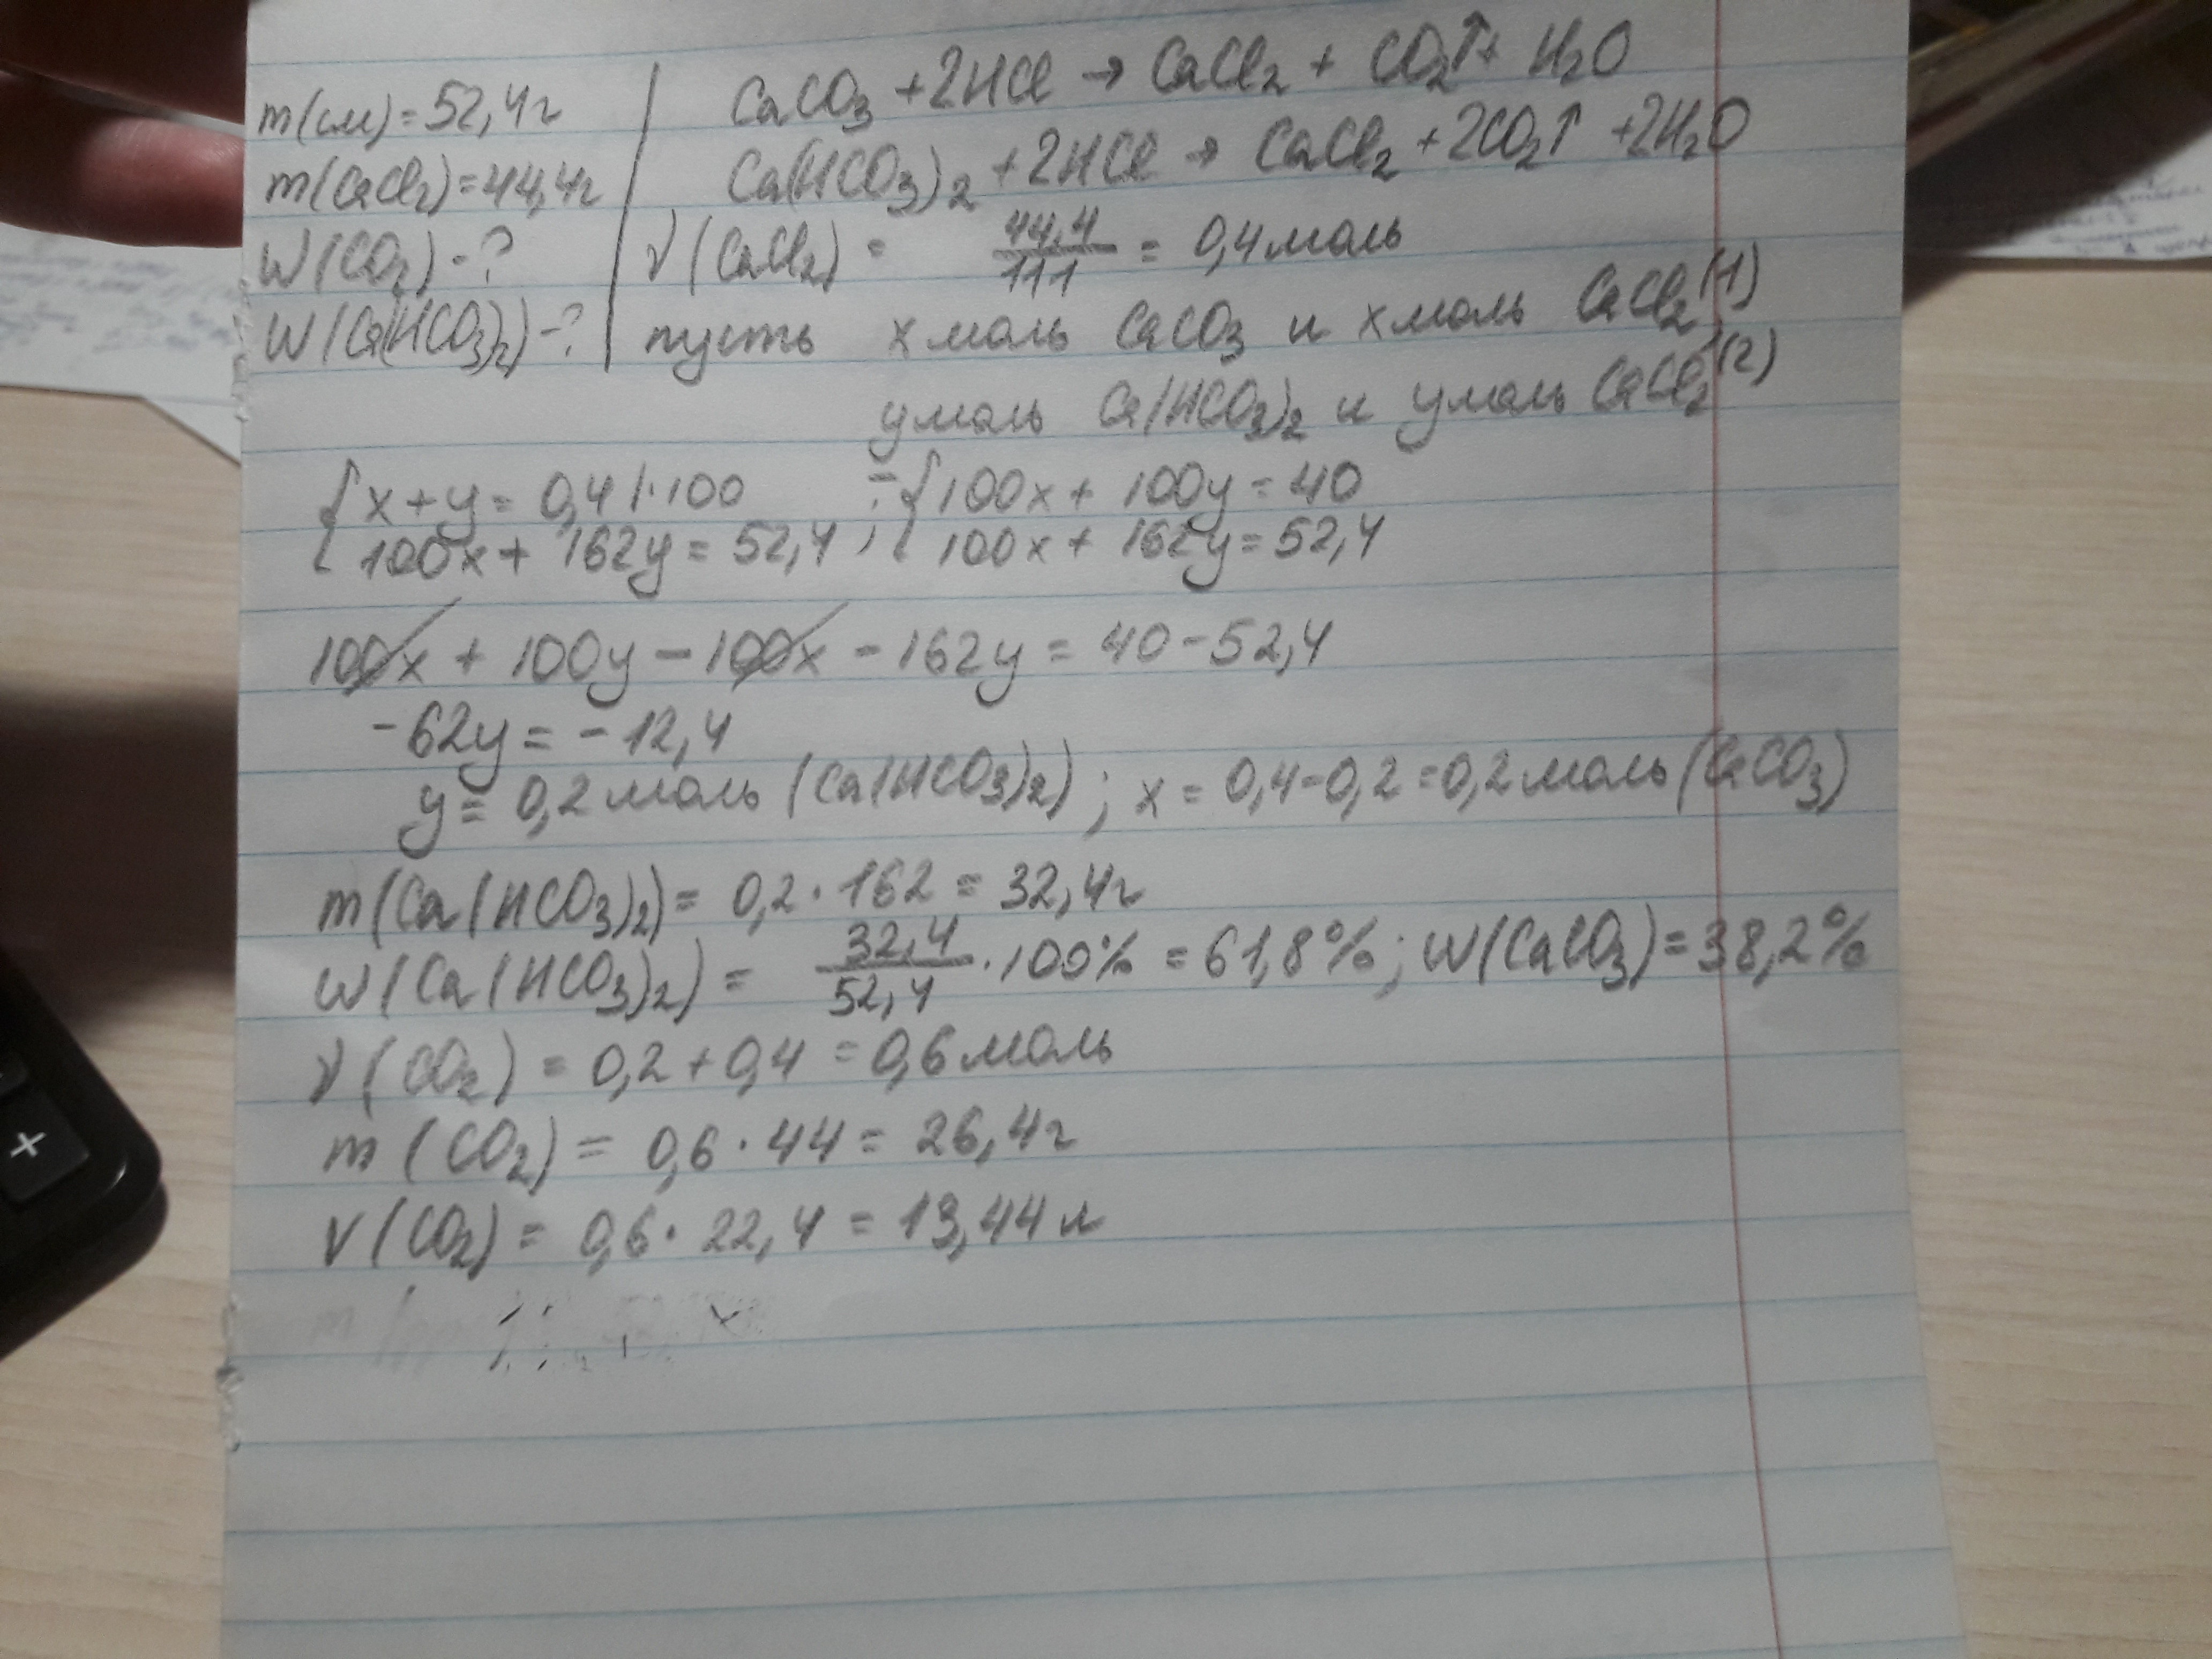 m(см) = 52,4г
m(CaCl2) = 44,4г
W(CO2) - ?
W(Ca(HCO3)2) - ?
CaCO3 + 2HCl → CaCl2 + CO2↑ + H2O
Ca(HCO3)2 + 2HCl → CaCl2 + 2CO2↑ + 2H2O
ν(CaCl2) = 44,4/111 = 0,4 моль
пусть x моль CaCO3 и x моль CaCl2 (1)
y моль Ca(HCO3)2 и y моль CaCl2 (2)
{ x + y = 0,4 |·100 ; = { 100x + 100y = 40
100x + 162y = 52,4 ; 100x + 162y = 52,4
100x + 100y - 100x - 162y = 40 - 52,4
-62y = -12,4
y = 0,2 моль (Ca(HCO3)2) ; x = 0,4 - 0,2 = 0,2 моль (CaCO3)
m(Ca(HCO3)2) = 0,2 · 162 = 32,4г
W(Ca(HCO3)2) = 32,4/52,4 · 100% = 61,8% ; W(CaCO3) = 38,2%
ν(CO2) = 0,2 + 0,4 = 0,6 моль
m(CO2) = 0,6 · 44 = 26,4г
V(CO2) = 0,6 · 22,4 = 13,44 л
+